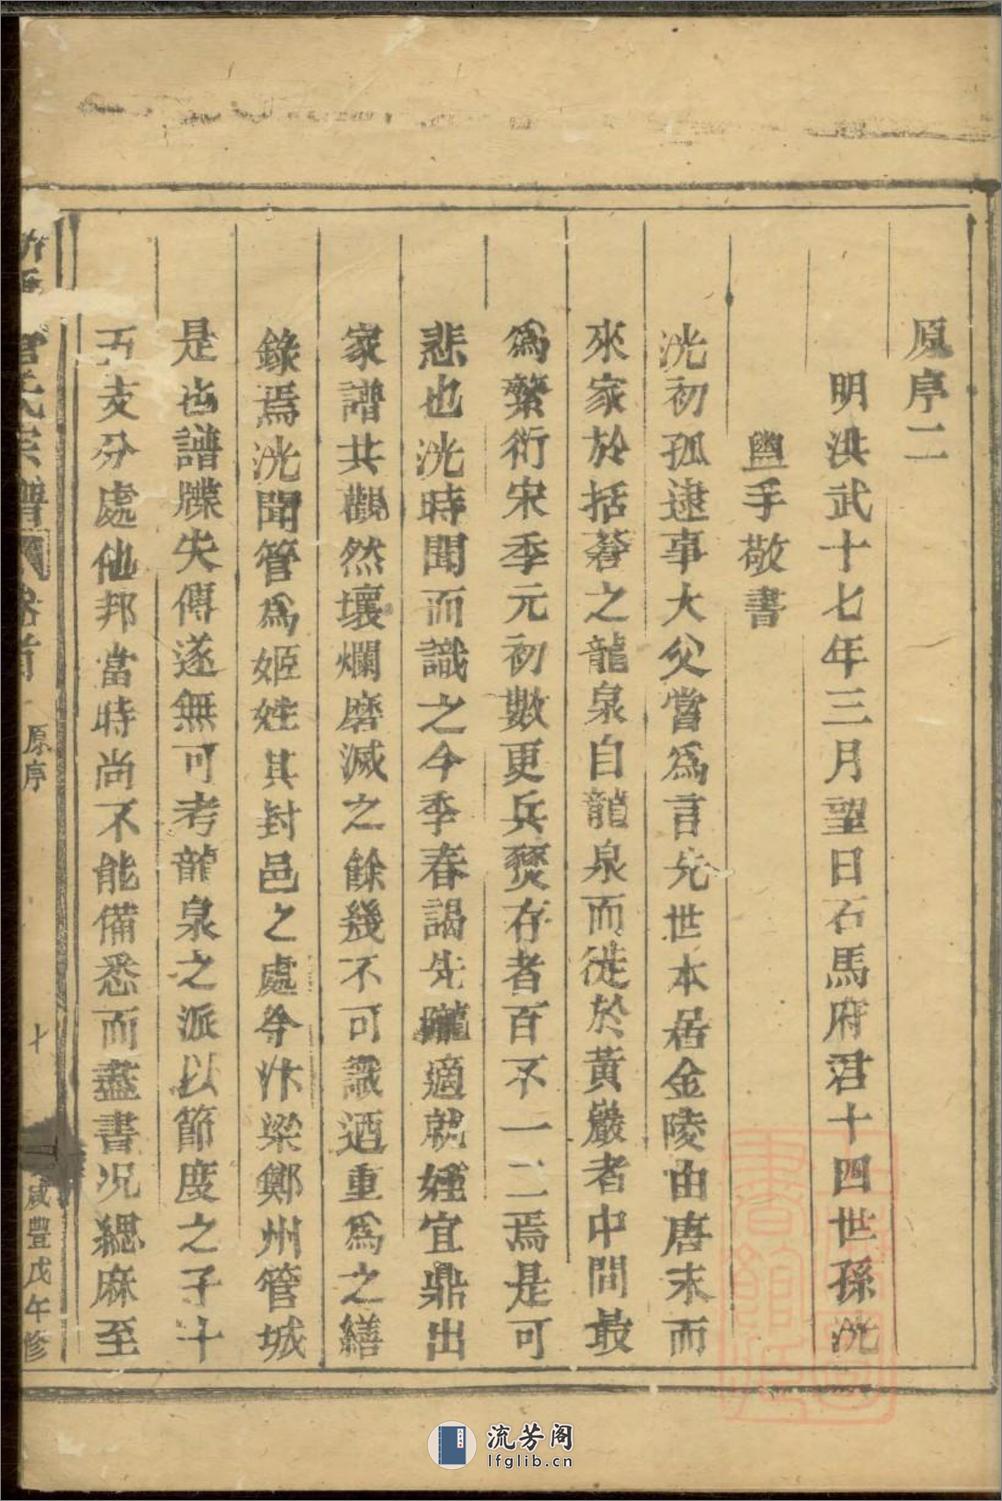 原序二
明洪武十七年三月望日石馬府君十四世孫洸
盥手敬書
洸初孤逮事大父嘗爲言先世本居金陵由唐末而
來家於括蒼之龍泉自龍泉而徙於黃巖者中間最
爲繁衍宋季元初數更兵燹存者百不一二焉是可
悲也洸時聞而識之今季春謁先隴適就姪宜鼎出
家譜共觀然壞爛磨滅之餘幾不可識迺重爲之繕
錄焉洸聞管爲姬姓其封邑之處今汴梁鄭州管城
是也譜牒失傳遂無可考龍泉之派以節度之子十
五支分處他邦當時尚不能備悉而盡書况緦麻至
管氏宗譜 卷首 原序 十 咸豐戊午修
流芳阁
lfglib.cn